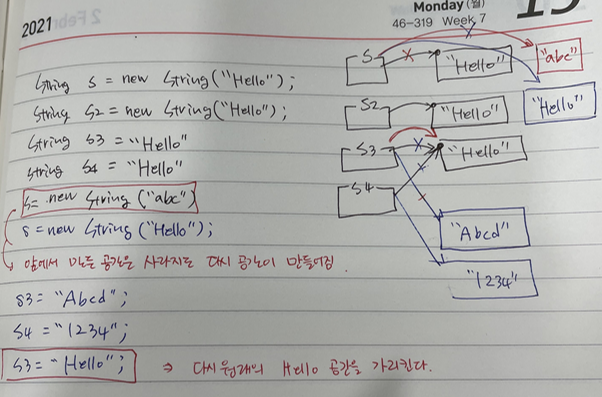 2021
Monday (월)
46-319 Week 7
String S = new String("Hello");
String S2 = new String("Hello");
String S3 = "Hello"
String S4 = "Hello"
S= new String("abc")
S=new String("Hello");
앞에서 만든 공간은 사라지고 다시 공간이 만들어짐.
S3= "Abcd";
S4 = "1234";
S3= "Hello";
⇒ 다시 원래의 Hello 공간을 가리킨다.
S
"Hello"
"abc"
"Hello"
S2
"Hello"
S3
"Hello"
S4
"Abcd"
"1234"